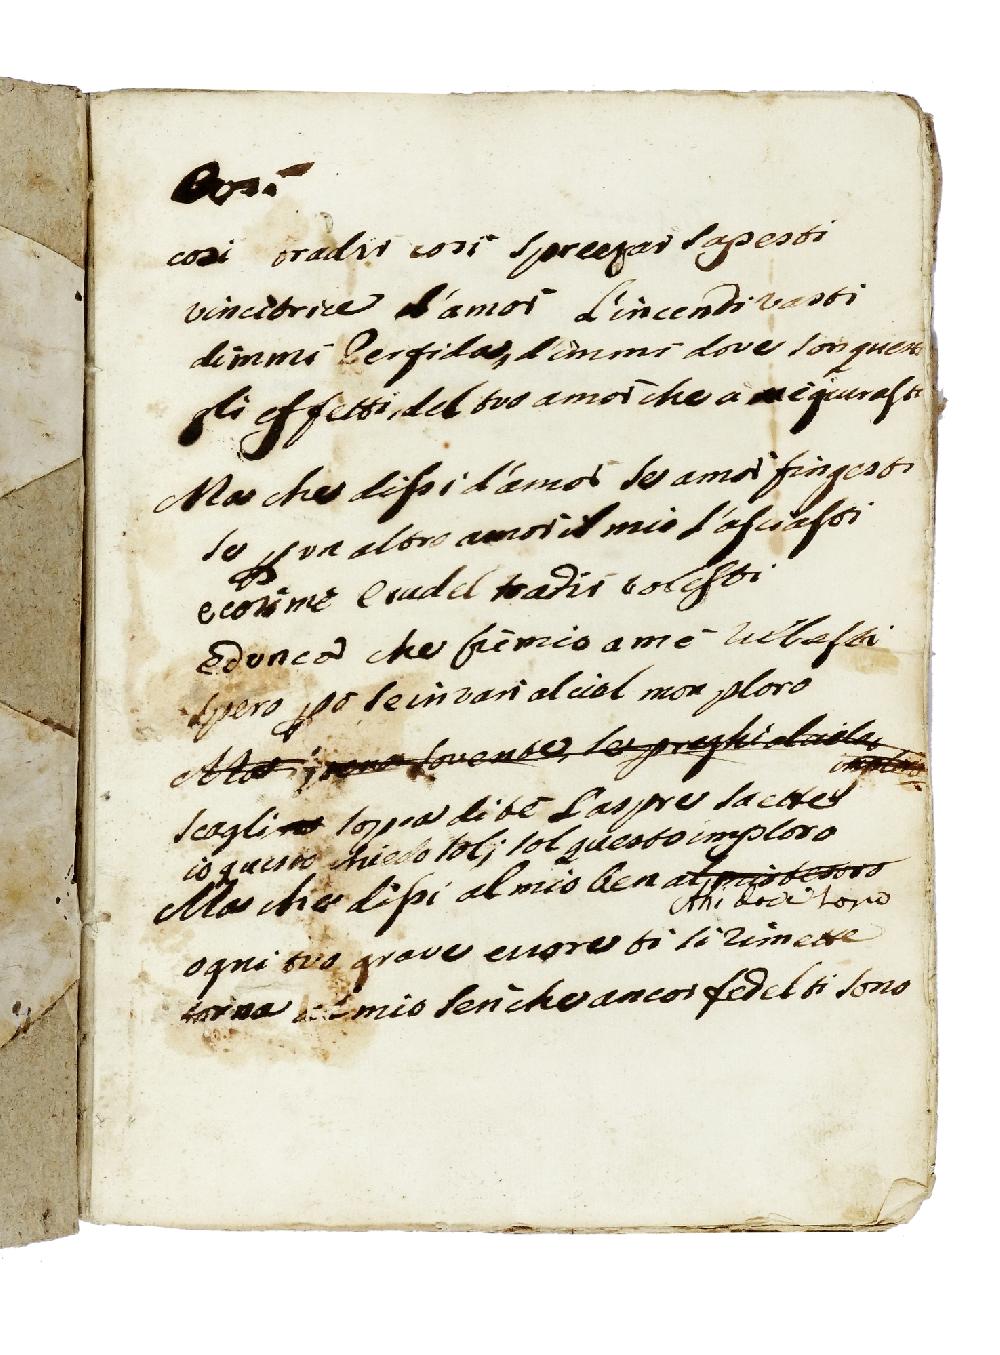 Cosi
cosi tradir cosi sprezzar sapesti
vincitrice d'amor L'incendi vasti
dimmi Perfida, dimmi dove son questi
gli effetti, del tuo amor che a me giurasti
Ma che dissi d'amor se amor fingesti
se p un altro amor il mio l'asciasti
e cosi me Crudel tradir volesti
e dunca che premio a me
spero po se in van al ciel non ploro
Ma sovente, se preghi al ciel
imploro
scagli sopra di te L'aspre saette
io questo chiedo sol, sol questo imploro
Ma che dissi al mio ben al mio tesoro
Ahi dove sono
ogni tuo grave errore ti si rimette
torna al mio sen che ancor fedel ti sono